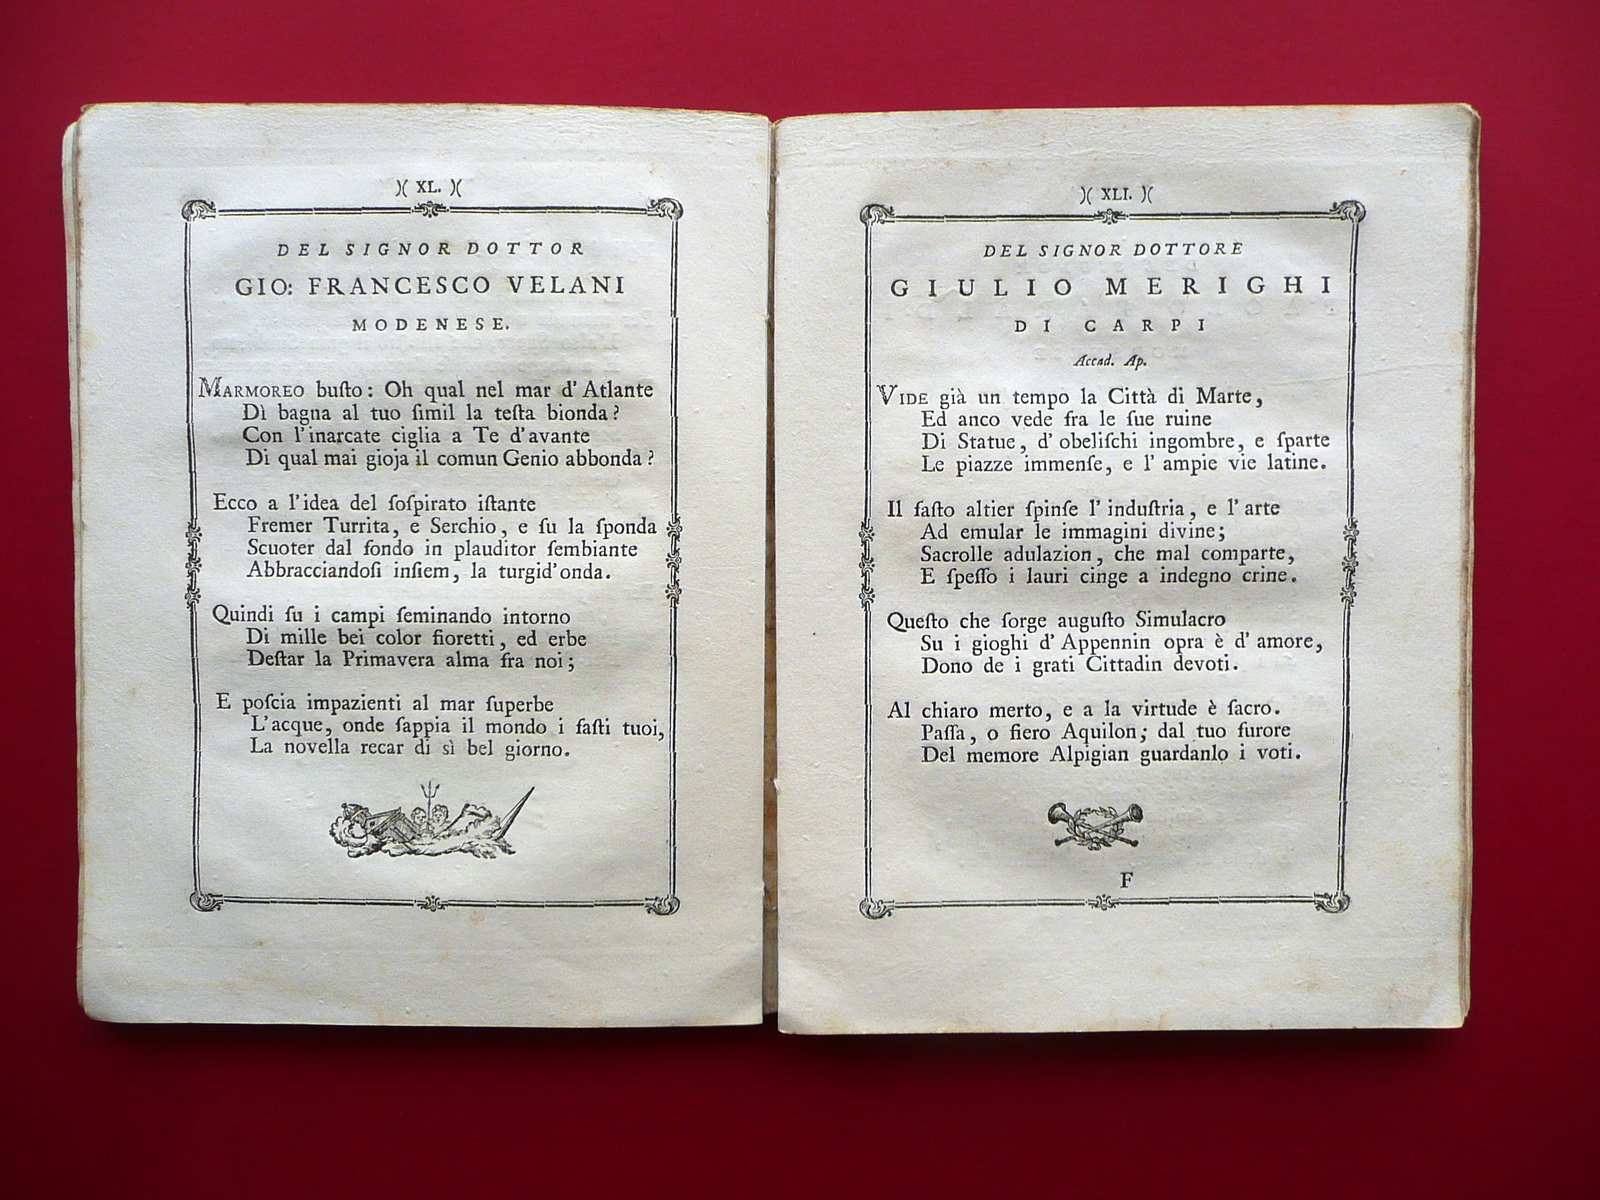 )( XL. )(
DEL SIGNOR DOTTOR
GIO: FRANCESCO VELANI
MODENESE.
MARMOREO buſto: Oh qual nel mar d'Atlante
Dì bagna al tuo ſimil la teſta bionda?
Con l'inarcate ciglia a Te d'avante
Di qual mai gioja il comun Genio abbonda?
Ecco a l'idea del ſoſpirato iſtante
Fremer Turrita, e Serchio, e ſu la ſponda
Scuoter dal fondo in plauditor ſembiante
Abbracciandoſi inſiem, la turgid'onda.
Quindi ſu i campi ſeminando intorno
Di mille bei color fioretti, ed erbe
Deſtar la Primavera alma fra noi;
E poſcia impazienti al mar ſuperbe
L'acque, onde ſappia il mondo i faſti tuoi,
La novella recar di sì bel giorno.
)( XLI. )(
DEL SIGNOR DOTTORE
GIULIO MERIGHI
DI CARPI
Accad. Ap.
VIDE già un tempo la Città di Marte,
Ed anco vede fra le ſue ruine
Di Statue, d' obeliſchi ingombre, e ſparte
Le piazze immenſe, e l' ampie vie latine.
Il faſto altier ſpinſe l' induſtria, e l' arte
Ad emular le immagini divine;
Sacrolle adulazion, che mal comparte,
E ſpeſſo i lauri cinge a indegno crine.
Queſto che ſorge auguſto Simulacro
Su i gioghi d' Appennin opra è d' amore,
Dono de i grati Cittadin devoti.
Al chiaro merto, e a la virtude è ſacro.
Paſſa, o fiero Aquilon; dal tuo furore
Del memore Alpigian guardanlo i voti.
F